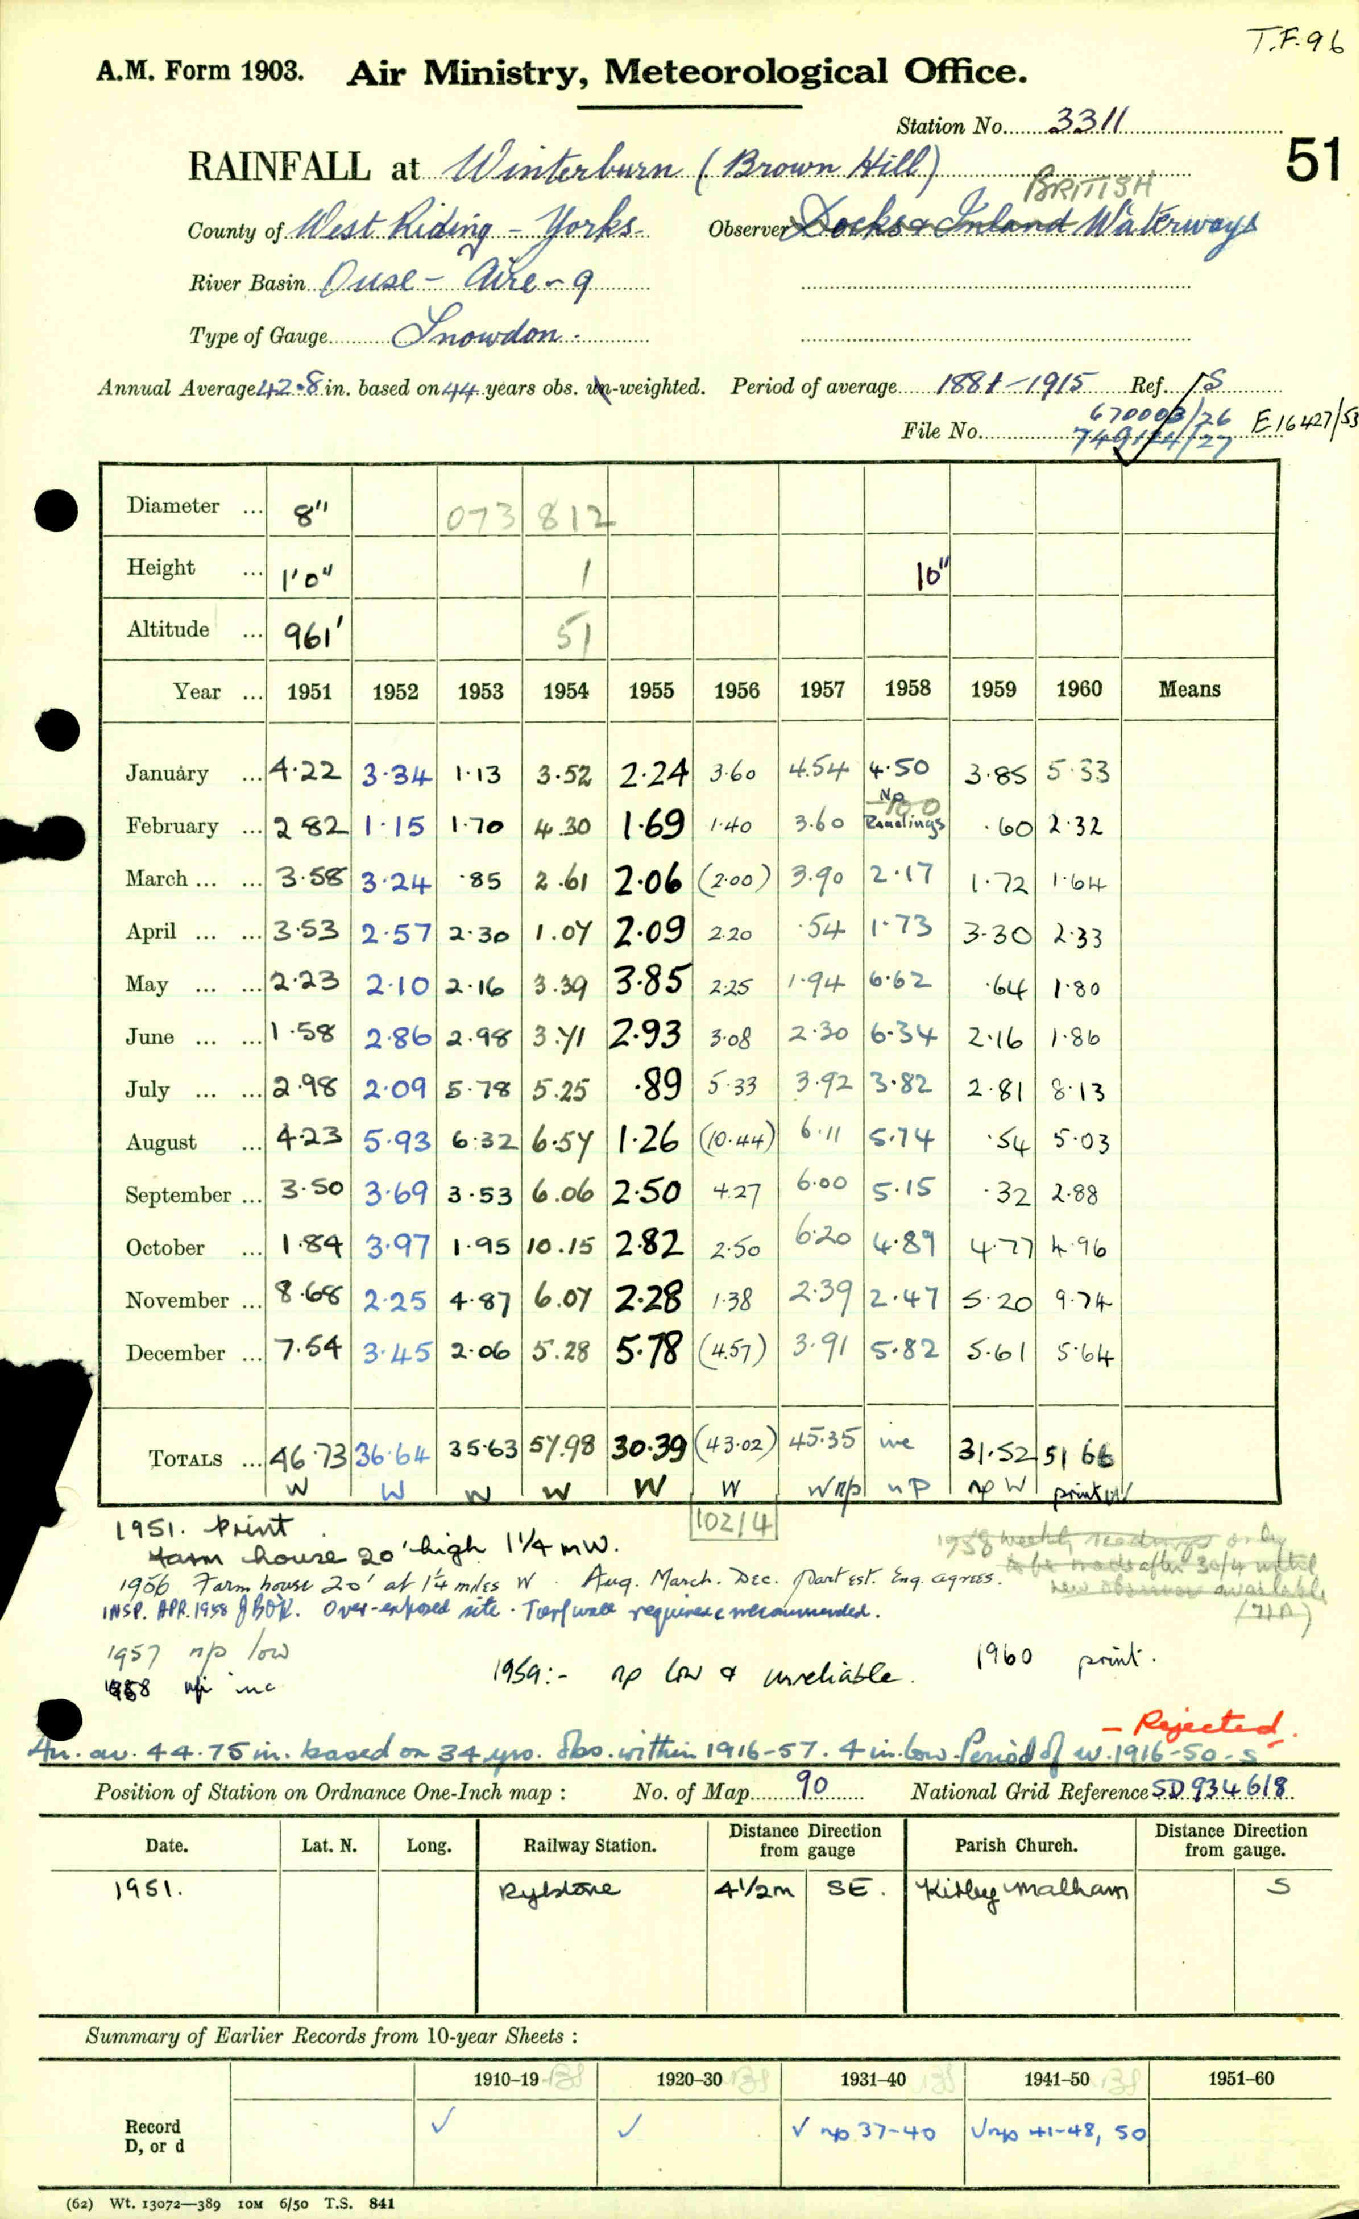 T.F. 96
A.M. Form 1903. Air Ministry, Meteorological Office.
Station No. 3311
51
RAINFALL at Winterburn (Brown Hill)
BRITISH
County of West Riding - Yorks. Observer Docks & Inland Waterways
River Basin Ouse - Aire - 9
Type of Gauge Snowdon.
Annual Average 42.8 in. based on 44 years obs. un-weighted. Period of average 1881-1915 Ref. S
670003/26
File No. 749124/27 E16427/53
Diameter ... 8" 073 812
Height ... 1'0" 1 10"
Altitude ... 961' 51
Year ... 1951 1952 1953 1954 1955 1956 1957 1958 1959 1960 Means
January ... 4.22 3.34 1.13 3.52 2.24 3.60 4.54 4.50 3.85 5.33
February ... 2.82 1.15 1.70 4.30 1.69 1.40 3.60 No Readings .60 2.32
March ... ... 3.58 3.24 .85 2.61 2.06 (2.00) 3.90 2.17 1.72 1.64
April ... ... 3.53 2.57 2.30 1.07 2.09 2.20 .54 1.73 3.30 2.33
May ... ... 2.23 2.10 2.16 3.39 3.85 2.25 1.94 6.62 .64 1.80
June ... ... 1.58 2.86 2.98 3.71 2.93 3.08 2.30 6.34 2.16 1.86
July ... ... 2.98 2.09 5.78 5.25 .89 5.33 3.92 3.82 2.81 8.13
August ... 4.23 5.93 6.32 6.57 1.26 (10.44) 6.11 5.74 .54 5.03
September ... 3.50 3.69 3.53 6.06 2.50 4.27 6.00 5.15 .32 2.88
October ... 1.84 3.97 1.95 10.15 2.82 2.50 6.20 4.89 4.77 4.96
November ... 8.68 2.25 4.87 6.07 2.28 1.38 2.39 2.47 5.20 9.74
December ... 7.54 3.45 2.06 5.28 5.78 (4.57) 3.91 5.82 5.61 5.64
TOTALS ... 46.73 36.64 35.63 57.98 30.39 (43.02) 45.35 inc 31.52 51.66
W W W W W W W np np np W print W
102/4
1951. Print.
Farm house 20' high 1 1/4 m W.
1958 weekly readings only
to be made after 30/4 until
new observer available
(71A)
1956 Farm house 20' at 1 1/4 miles W. Aug. March. Dec. part est. Eng. agrees.
INSP. APR. 1958 Over-exposed site. Turf wall required & recommended.
1957 np low
1958 np inc
1959:- np low & unreliable.
1960 print.
- Rejected.
An. av. 44.75 in. based on 34 yrs. obs. within 1916-57. 4 in. low. Period of w. 1916-50 - S
Position of Station on Ordnance One-Inch map : No. of Map 90 National Grid Reference SD 934618
Date. Lat. N. Long. Railway Station. Distance from gauge Direction Parish Church. Distance Direction from gauge.
1951. Rylstone 4 1/2 m SE. Kirkby Malham S
Summary of Earlier Records from 10-year Sheets :
1910-19 1920-30 1931-40 1941-50 1951-60
Record
D, or d ✓ ✓ ✓ np 37-40 ✓ np 41-48, 50
(62) Wt. 13072—389 10M 6/50 T.S. 841